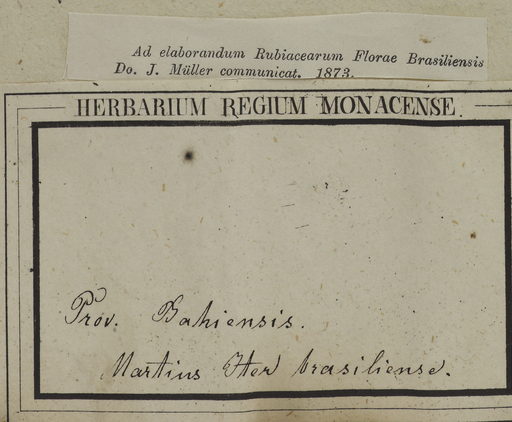 Ad elaborandum Rubiacearum Florae Brasiliensis
Do. J. Müller communicat. 1873.
HERBARIUM REGIUM MONACENSE.
Prov. Bahiensis.
Martius Iter brasiliense.